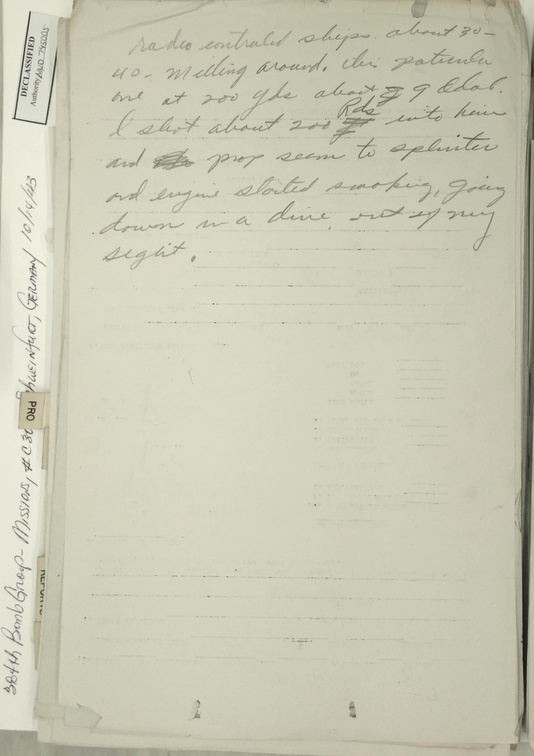 radio controled ships. about 30-
40- Milling around. this paticular
one at 200 yds about 9 O
I shot about 200 Rds into him
and prop seem to splinter
and engine started smoking, going
down in a dive, out of my
sight.
DECLASSIFIED
Authority NND 745005
384th Bomb Group - Mission, #C30 Schweinfurt, Germany 10/14/43
PRO
REPORTS